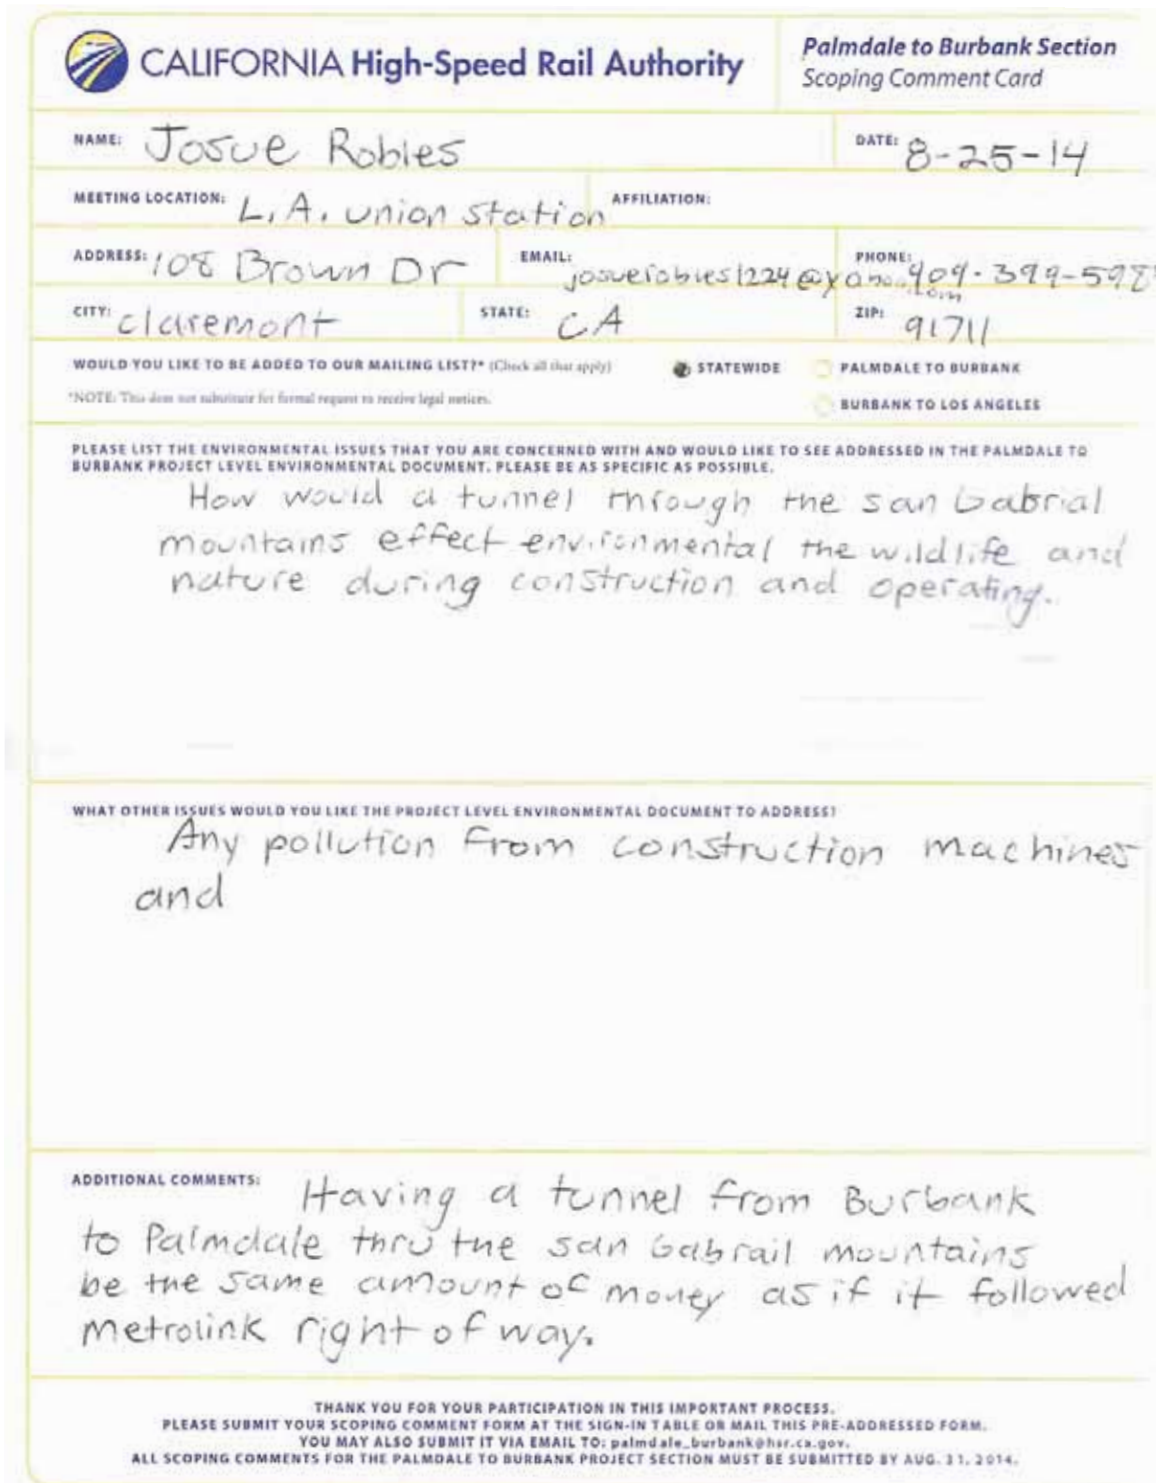 CALIFORNIA High-Speed Rail Authority
Palmdale to Burbank Section
Scoping Comment Card
NAME: Josue Robles
DATE: 8-25-14
MEETING LOCATION: L.A. union station
AFFILIATION:
ADDRESS: 108 Brown Dr
EMAIL: josuerobles1224@yahoo.com
PHONE: 909-399-598
CITY: claremont
STATE: CA
ZIP: 91711
WOULD YOU LIKE TO BE ADDED TO OUR MAILING LIST?* (Check all that apply)
STATEWIDE
PALMDALE TO BURBANK
*NOTE: This does not substitute for formal request to receive legal notices.
BURBANK TO LOS ANGELES
PLEASE LIST THE ENVIRONMENTAL ISSUES THAT YOU ARE CONCERNED WITH AND WOULD LIKE TO SEE ADDRESSED IN THE PALMDALE TO
BURBANK PROJECT LEVEL ENVIRONMENTAL DOCUMENT. PLEASE BE AS SPECIFIC AS POSSIBLE.
How would a tunnel through the san Gabrial
mountains effect environmental the wildlife and
nature during construction and operating.
WHAT OTHER ISSUES WOULD YOU LIKE THE PROJECT LEVEL ENVIRONMENTAL DOCUMENT TO ADDRESS?
Any pollution from construction machines
and
ADDITIONAL COMMENTS: Having a tunnel from Burbank
to Palmdale thru the san Gabrail mountains
be the same amount of money as if it followed
metrolink right of way.
THANK YOU FOR YOUR PARTICIPATION IN THIS IMPORTANT PROCESS.
PLEASE SUBMIT YOUR SCOPING COMMENT FORM AT THE SIGN-IN TABLE OR MAIL THIS PRE-ADDRESSED FORM.
YOU MAY ALSO SUBMIT IT VIA EMAIL TO: palmdale_burbank@hsr.ca.gov.
ALL SCOPING COMMENTS FOR THE PALMDALE TO BURBANK PROJECT SECTION MUST BE SUBMITTED BY AUG. 31, 2014.